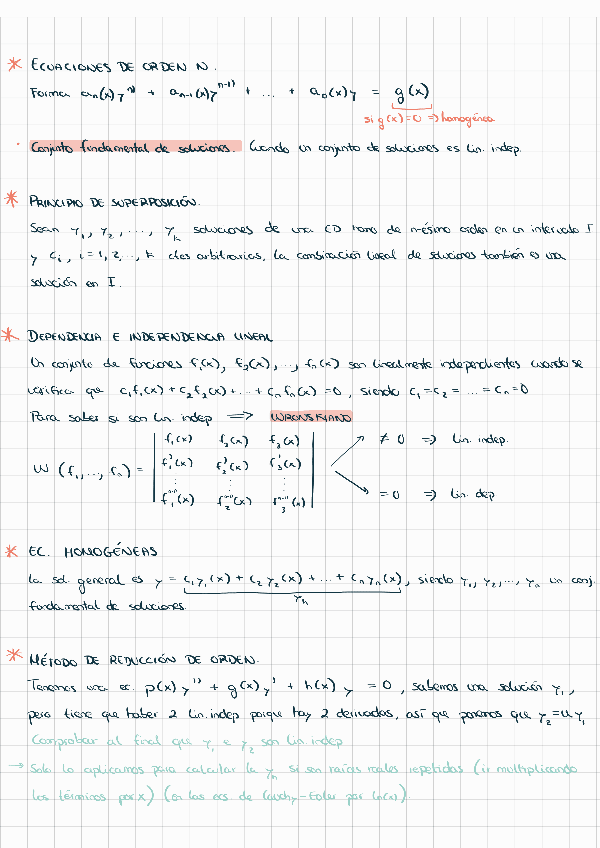 * ECUACIONES DE ORDEN N.
Forma aₙ(x)yⁿ⁾ + aₙ₋₁(x)yⁿ⁻¹⁾ + ... + a₀(x)y = g(x)
si g(x)=0 => homogénea
· Conjunto fundamental de soluciones. Cuando un conjunto de soluciones es lin. indep.
* PRINCIPIO DE SUPERPOSICIÓN.
Sean y₁, y₂, ..., yₖ soluciones de una ED homo de mismo orden en un intervalo I
y cᵢ, i=1, 2, ..., k ctes arbitrarias, la combinación lineal de soluciones también es una
solución en I.
* DEPENDENCIA E INDEPENDENCIA LINEAL
Un conjunto de funciones f₁(x), f₂(x), ..., fₙ(x) son linealmente independientes cuando se
verifica que c₁f₁(x) + c₂f₂(x) + ... + cₙfₙ(x) = 0, siendo c₁ = c₂ = ... = cₙ = 0
Para saber si son lin. indep => WRONSKIANO
f₁(x) f₂(x) f₃(x) ≠ 0 => lin. indep.
W (f₁, ..., fₙ) = f₁'(x) f₂'(x) f₃'(x)
⋮ ⋮ ⋮
f₁ⁿ⁻¹⁾(x) f₂ⁿ⁻¹⁾(x) f₃ⁿ⁻¹⁾(x) = 0 => lin. dep
* EC. HOMOGÉNEAS
la sol. general es y = c₁y₁(x) + c₂y₂(x) + ... + cₙyₙ(x), siendo y₁, y₂, ..., yₙ un conj.
yₕ
fundamental de soluciones.
* MÉTODO DE REDUCCIÓN DE ORDEN.
Tenemos una ec. p(x)y'' + g(x)y' + h(x)y = 0, sabemos una solución y₁,
pero tiene que haber 2 lin. indep porque hay 2 derivadas, así que ponemos que y₂=uy₁
Comprobar al final que y₁ e y₂ son lin. indep
→ Solo lo aplicamos para calcular la yₕ si son raíces reales repetidas (ir multiplicando
los términos por x) (en las ecs de Cauchy-Euler por ln(x))